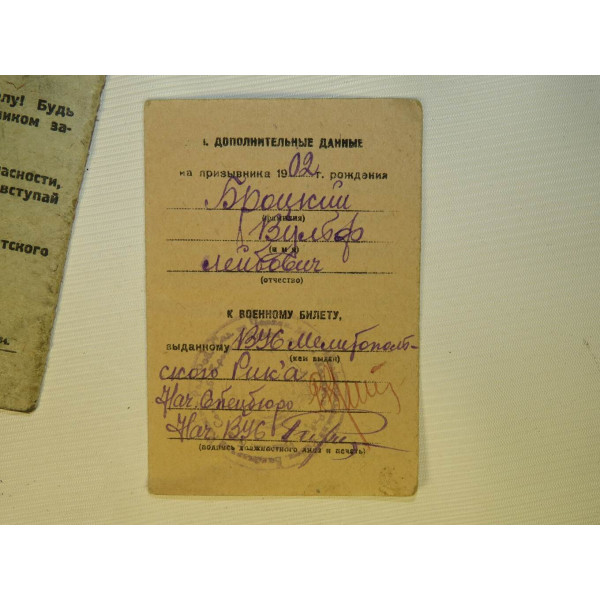 елу! Будь
ником за-
асности,
вступай
тского
1. ДОПОЛНИТЕЛЬНЫЕ ДАННЫЕ
на призывника 1902 г. рождения
Броцкий
(фамилия)
Вульф
(имя)
Лейбович
(отчество)
К ВОЕННОМУ БИЛЕТУ,
выданному ВУб Мелитополь-
(кем выдан)
ского Рик'а
Нач. Спецбюро
Нач. ВУб
(подпись должностного лица и печать)